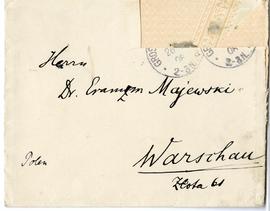 Herrn
Dr. Erazm Majewski
Polen
Warschau
Złota 61